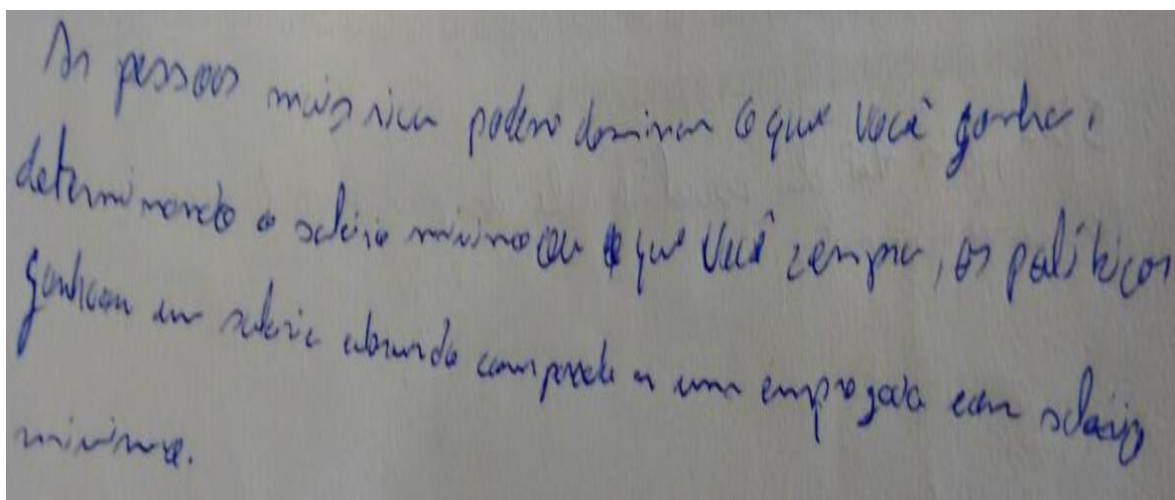 As pessoas mais rica podem dominar o que você ganha,
determinando o salário minimo ou o que você compra, os políticos
ganham um salário absurdo comparado a um empregado com salário
minimo.